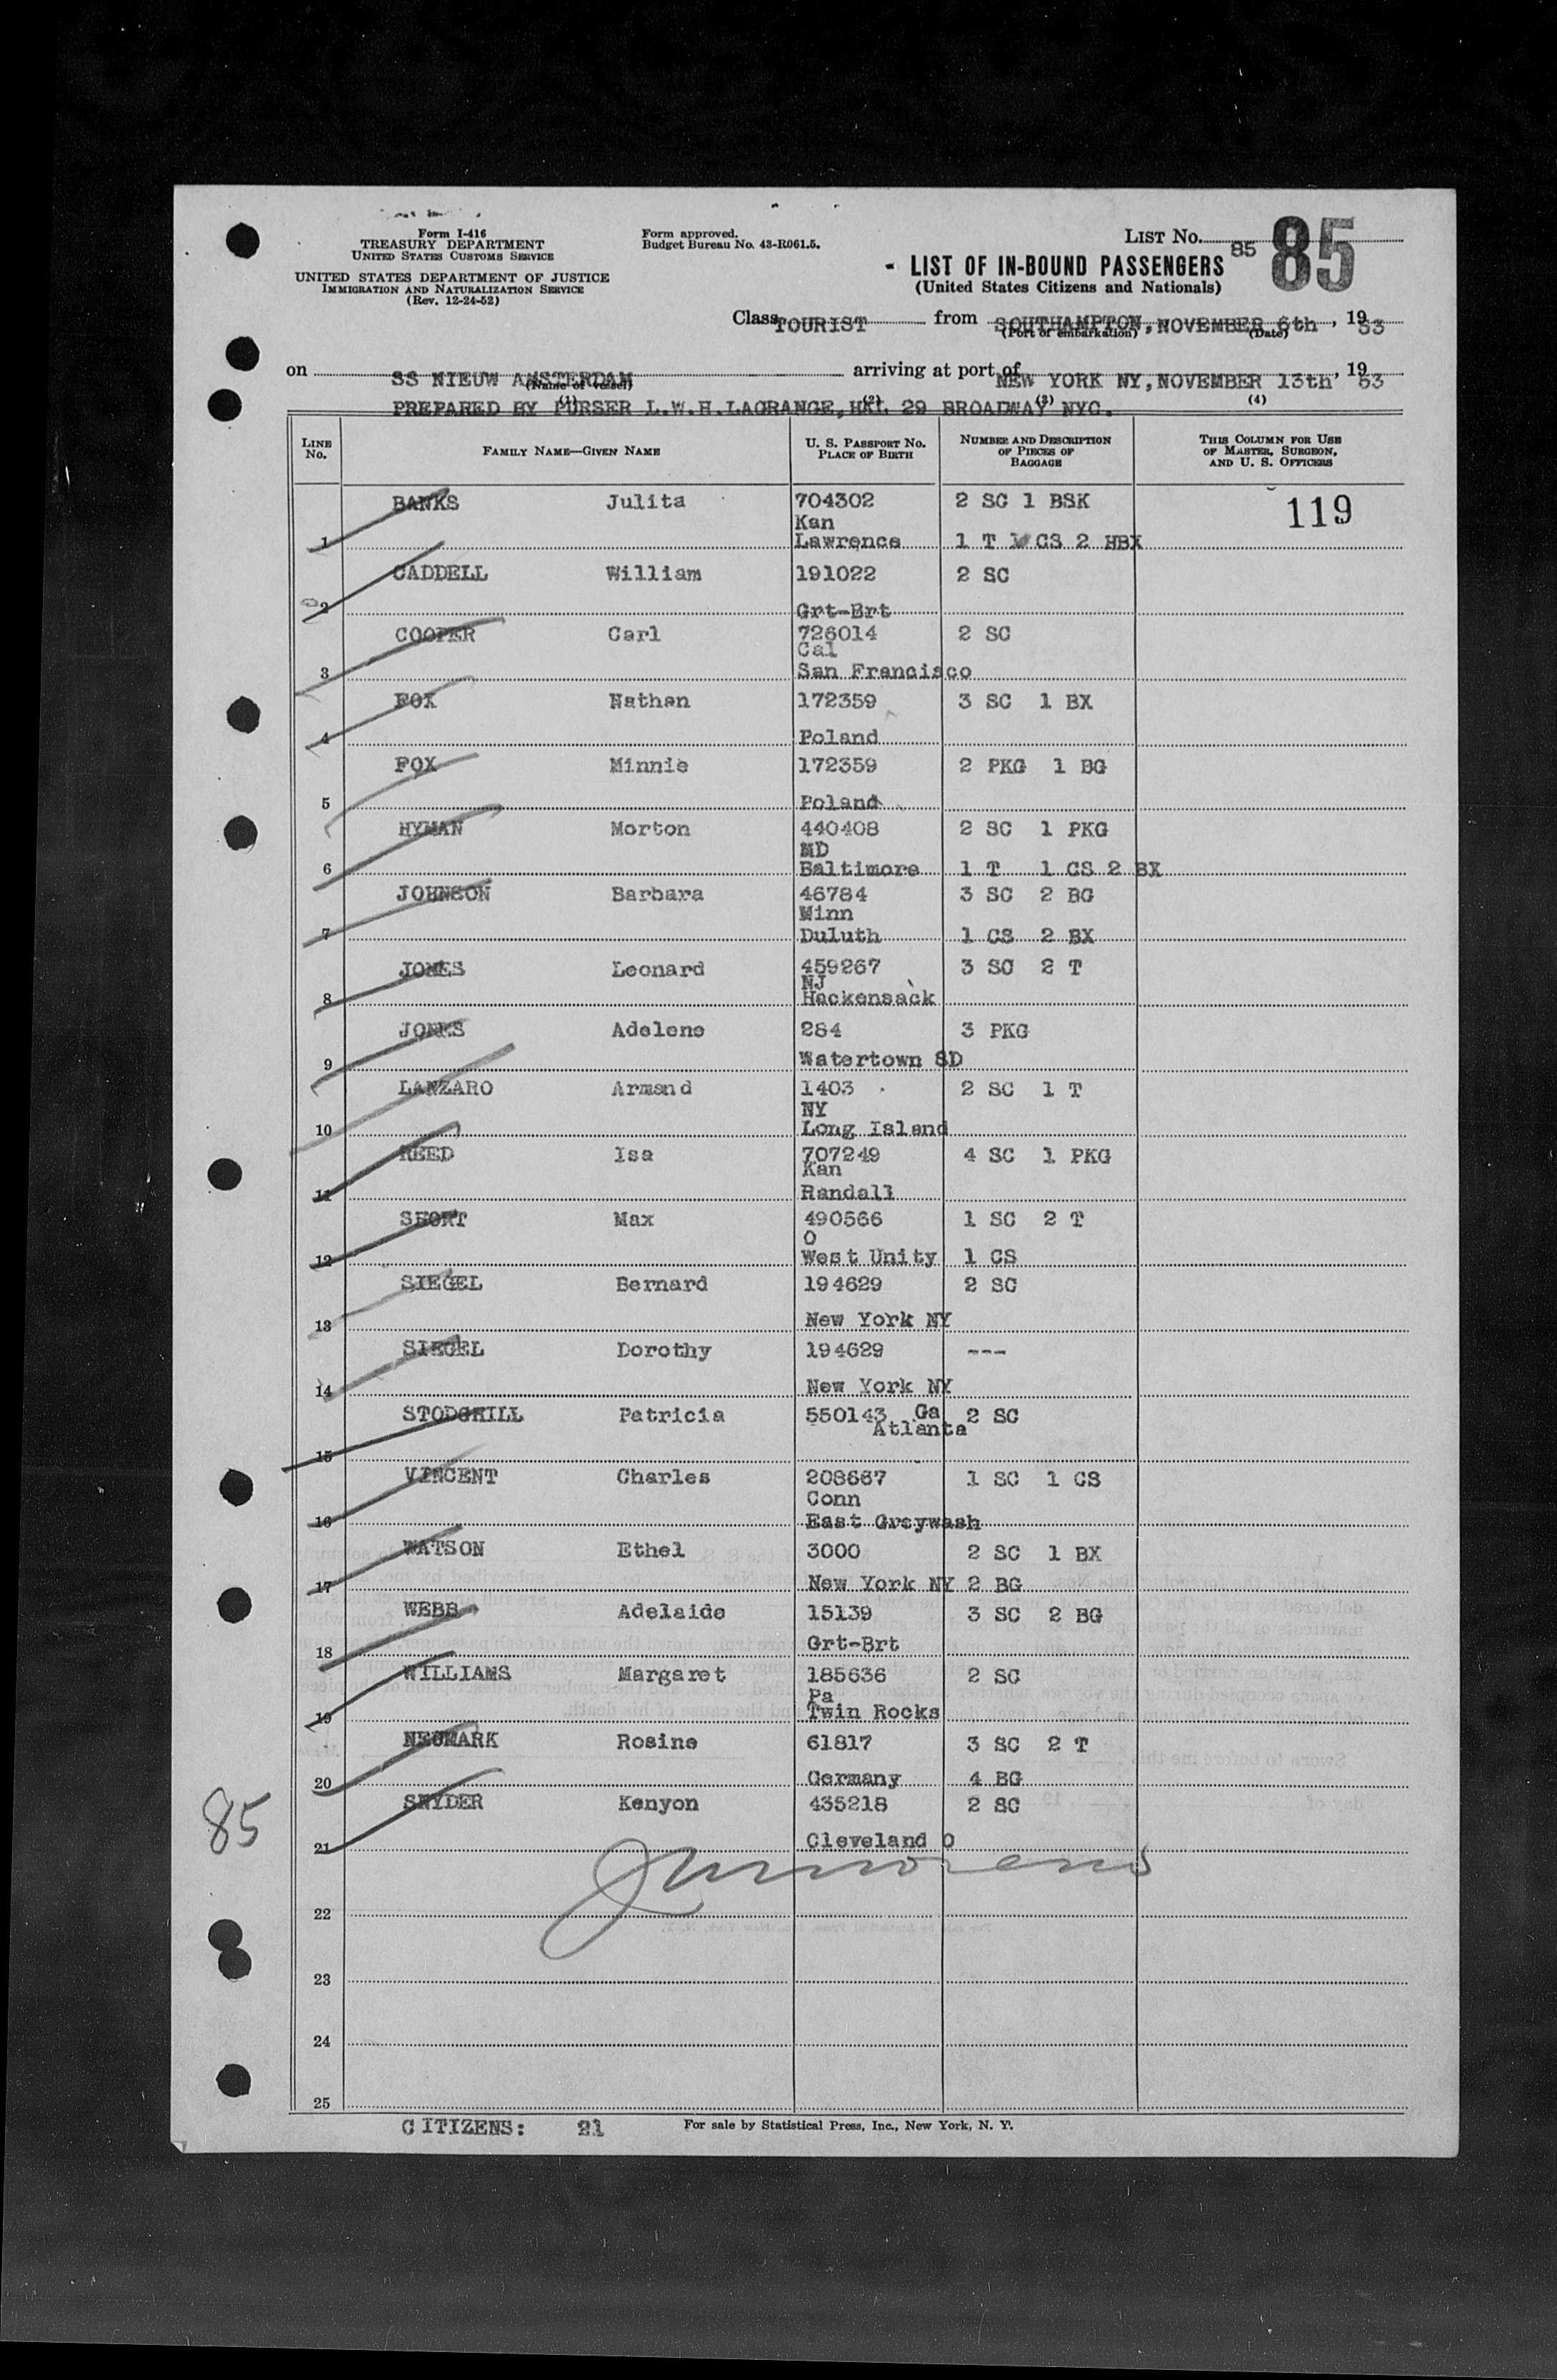 Form I-416
TREASURY DEPARTMENT
UNITED STATES CUSTOMS SERVICE
UNITED STATES DEPARTMENT OF JUSTICE
IMMIGRATION AND NATURALIZATION SERVICE
(Rev. 12-24-52)
Form approved.
Budget Bureau No. 43-R061.5.
LIST No. 85 85
LIST OF IN-BOUND PASSENGERS
(United States Citizens and Nationals)
Class TOURIST from SOUTHAMPTON, NOVEMBER 6th, 1953
(Port of embarkation) (Date)
on SS NIEUW AMSTERDAM arriving at port of NEW YORK NY, NOVEMBER 13th, 1953
(Name of vessel)
PREPARED BY PURSER L.W.H.LAGRANGE, HAL 29 BROADWAY NYC.
(1) (2) (3) (4)
LINE No. FAMILY NAME—GIVEN NAME U. S. PASSPORT No. PLACE OF BIRTH NUMBER AND DESCRIPTION OF PIECES OF BAGGAGE THIS COLUMN FOR USE OF MASTER, SURGEON, AND U. S. OFFICERS
BANKS Julita 704302 2 SC 1 BSK 119
Kan
1 Lawrence 1 T 1 CS 2 HBX
CADDELL William 191022 2 SC
2 Grt-Brt
COOPER Carl 726014 2 SC
Cal
3 San Francisco
FOX Nathan 172359 3 SC 1 BX
4 Poland
FOX Minnie 172359 2 PKG 1 BG
5 Poland
HYMAN Morton 440408 2 SC 1 PKG
MD
6 Baltimore 1 T 1 CS 2 BX
JOHNSON Barbara 46784 3 SC 2 BG
Minn
7 Duluth 1 CS 2 BX
JONES Leonard 459267 3 SC 2 T
NJ
8 Hackensack
JONES Adelene 284 3 PKG
9 Watertown SD
LANZARO Armand 1403 2 SC 1 T
NY
10 Long Island
REED Isa 707249 4 SC 1 PKG
Kan
11 Randall
SHORT Max 490566 1 SC 2 T
O
12 West Unity 1 CS
SIEGEL Bernard 194629 2 SC
13 New York NY
SIEGEL Dorothy 194629 ---
14 New York NY
STODGHILL Patricia 550143 Ga 2 SC
Atlanta
15
VINCENT Charles 208667 1 SC 1 CS
Conn
16 East Greywash
WATSON Ethel 3000 2 SC 1 BX
17 New York NY 2 BG
WEBB Adelaide 15139 3 SC 2 BG
18 Grt-Brt
WILLIAMS Margaret 185636 2 SC
Pa
19 Twin Rocks
NEUMARK Rosine 61817 3 SC 2 T
20 Germany 4 BG
SNYDER Kenyon 435218 2 SC
85
21 Cleveland O
22
23
24
25
CITIZENS: 21 For sale by Statistical Press, Inc., New York, N. Y.